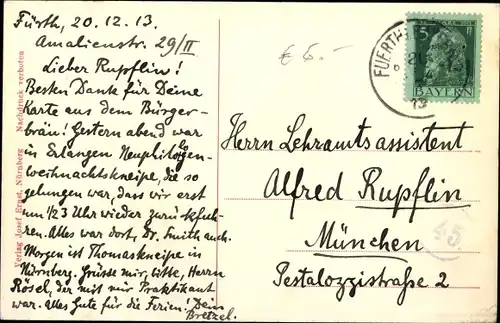 Fürth, 20.12.13.
Amalienstr. 29/II
Lieber Rupflin!
Besten Dank für Deine
Karte aus dem Bürger-
bräu! Gestern abend war
in Erlangen Neuphilologen-
weihnachtskneipe, die so
gelungen war, dass wir erst
um 1/23 Uhr wieder zurückfuh-
ren. Alles war dort, Dr. Smith auch.
Morgen ist Thomaskneipe in
Nürnberg. Grüsse mir, bitte, Herrn
Rösel, der mit mir Praktikant
war. Alles Gute für die Ferien! Dein
Bretzel.
Verlag Josef Ernst, Nürnberg Nachdruck verboten
€ 6.-
FUERTH
13
5
BAYERN
Herrn Lehramtsassistent
Alfred Rupflin
München
Pestalozzistraße 2
45